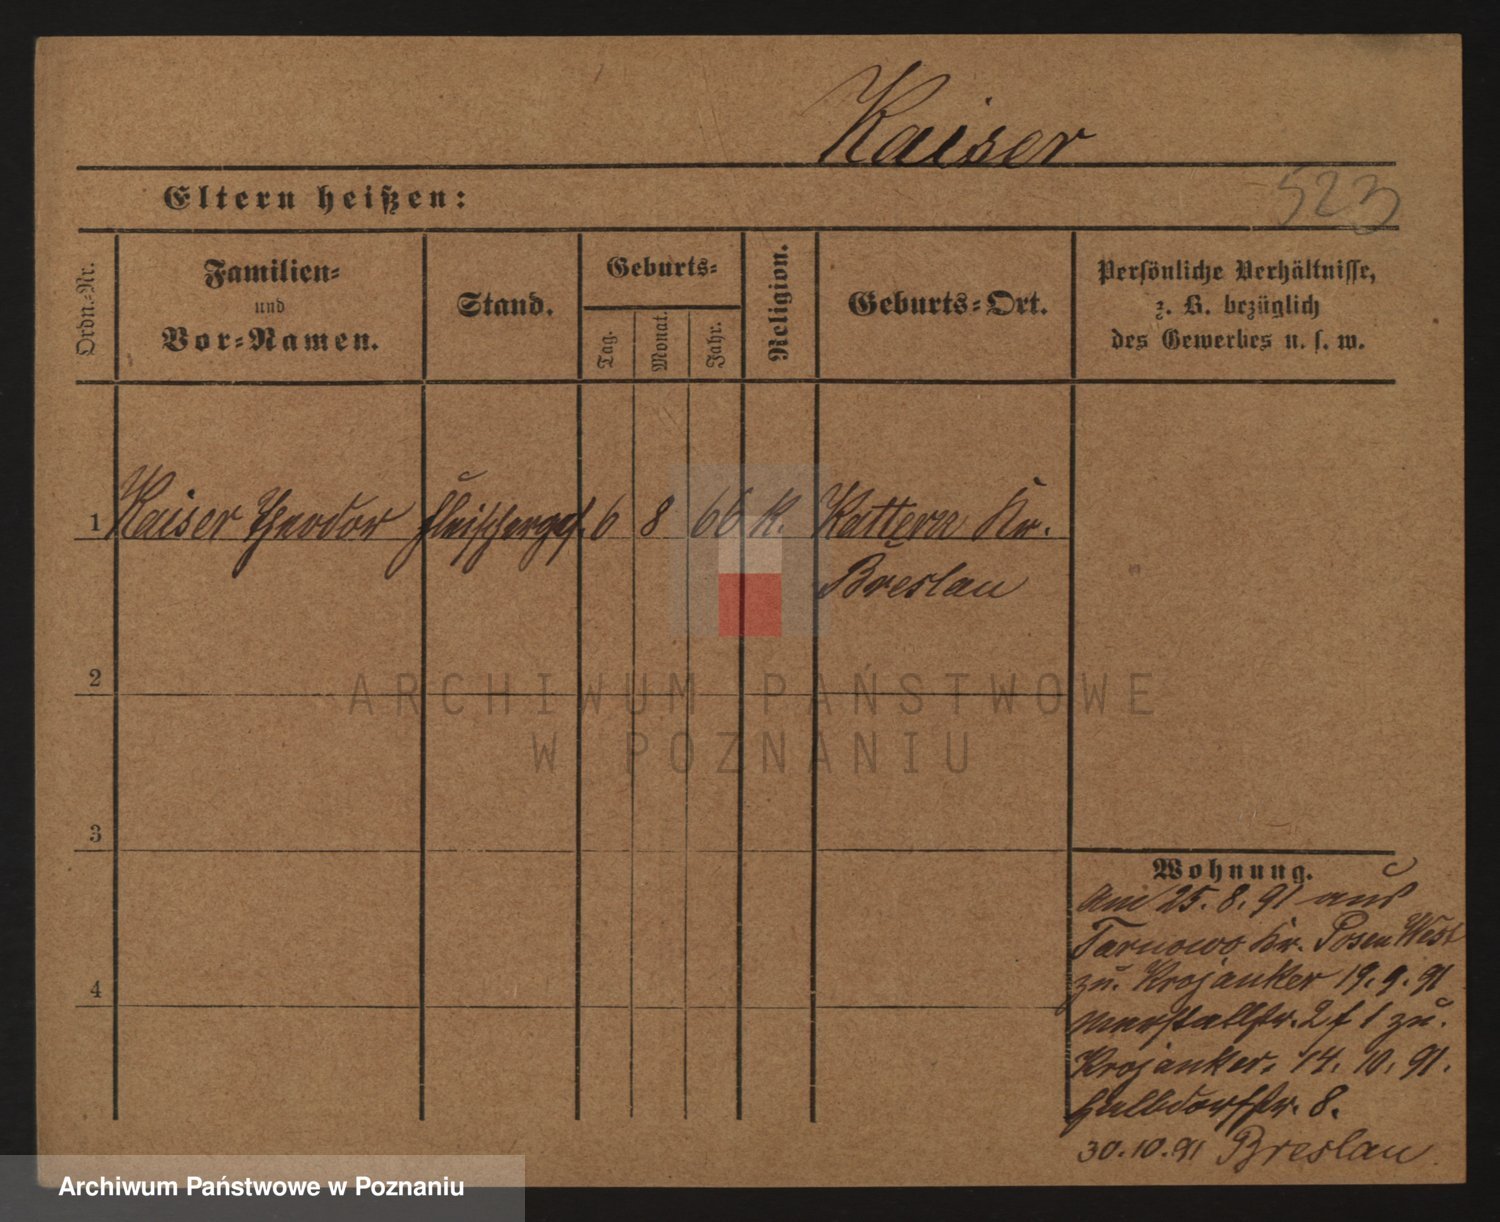 Kaiser
523
Eltern heißen:
Ordn.-Nr.
Familien-
und
Vor-Namen.
Stand.
Geburts-
Tag.
Monat.
Jahr.
Religion.
Geburts-Ort.
Persönliche Verhältnisse,
z. B. bezüglich
des Gewerbes u. s. w.
1 Kaiser Theodor Fleischerges. 6 8 66 K. Kattern Kr.
Breslau
2
3
4
Wohnung.
Am 25. 8. 91 aus
Tarnowo Kr. Posen West
zu. Krojanker 19. 9. 91
Marstallstr. 2 f 1 zu.
Krojanker. 14. 10. 91.
Halbdorfstr. 8.
30. 10. 91 Breslau
ARCHIWUM PAŃSTWOWE
W POZNANIU
Archiwum Państwowe w Poznaniu